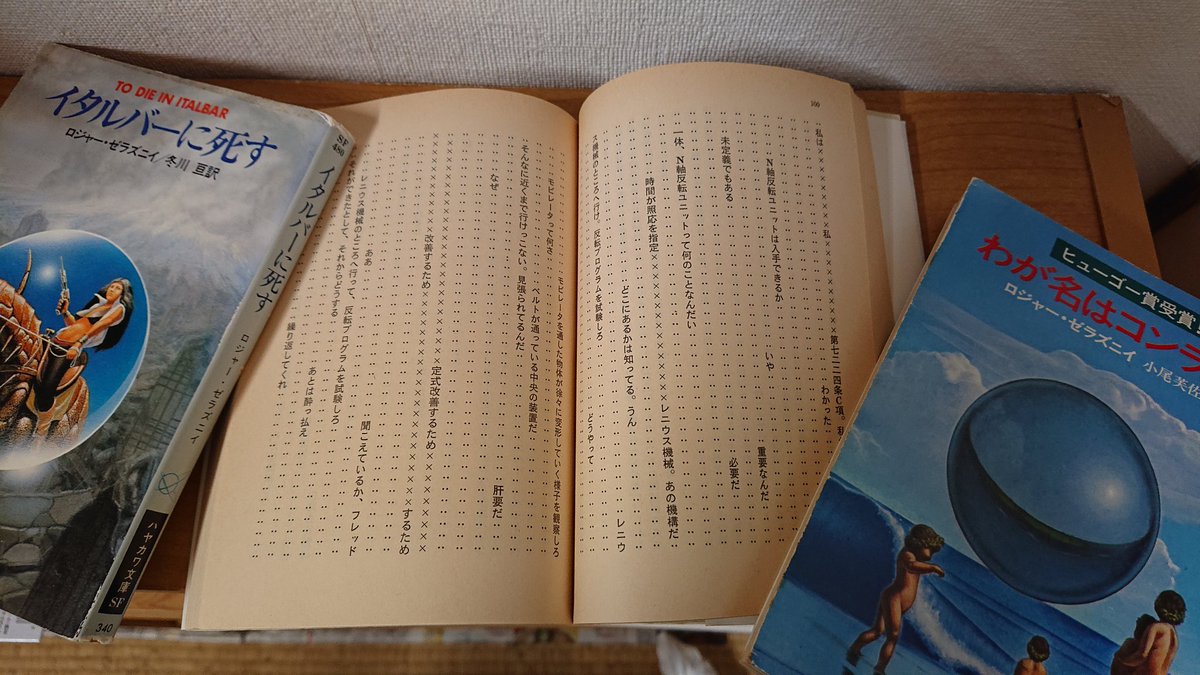 TO DIE IN ITALBAR
イタルバーに死す
ロジャー・ゼラズニイ/冬川 亘訳
SF
480
イタルバーに死す
ロジャー ゼラズニイ
ハヤカワ文庫
SF
340
100
私は××××××××私×××××××××××第七二二四条C項。
わかった
N軸反転ユニットは入手できるか
いや
重要なんだ
未定義でもある
必要だ
一体、N軸反転ユニットって何のことなんだい
時間が照応を指定××××××××××レニウス機械。あの機構だ
どこにあるかは知ってる。うん
レニウ
ス機械のところへ行け。反転プログラムを試験しろ
どうやって
モビレータを通した物体が徐々に変形していく様子を観察しろ
モビレータって何さ
ベルトが通っている中央の装置だ
そんなに近くまで行けっこない。見張られてるんだ
肝要だ
なぜ
××××××××××改善するため××××××××××定式改善するため××××××××するため
ああ
聞こえているか、フレッド
レニウス機械のところへ行って、反転プログラムを試験しろ
それができたとして、それからどうする
あとは酔っ払え
繰り返してくれ
ヒューゴー賞受賞
わが名はコンラ
ロジャー・ゼラズニイ 小尾芙佐